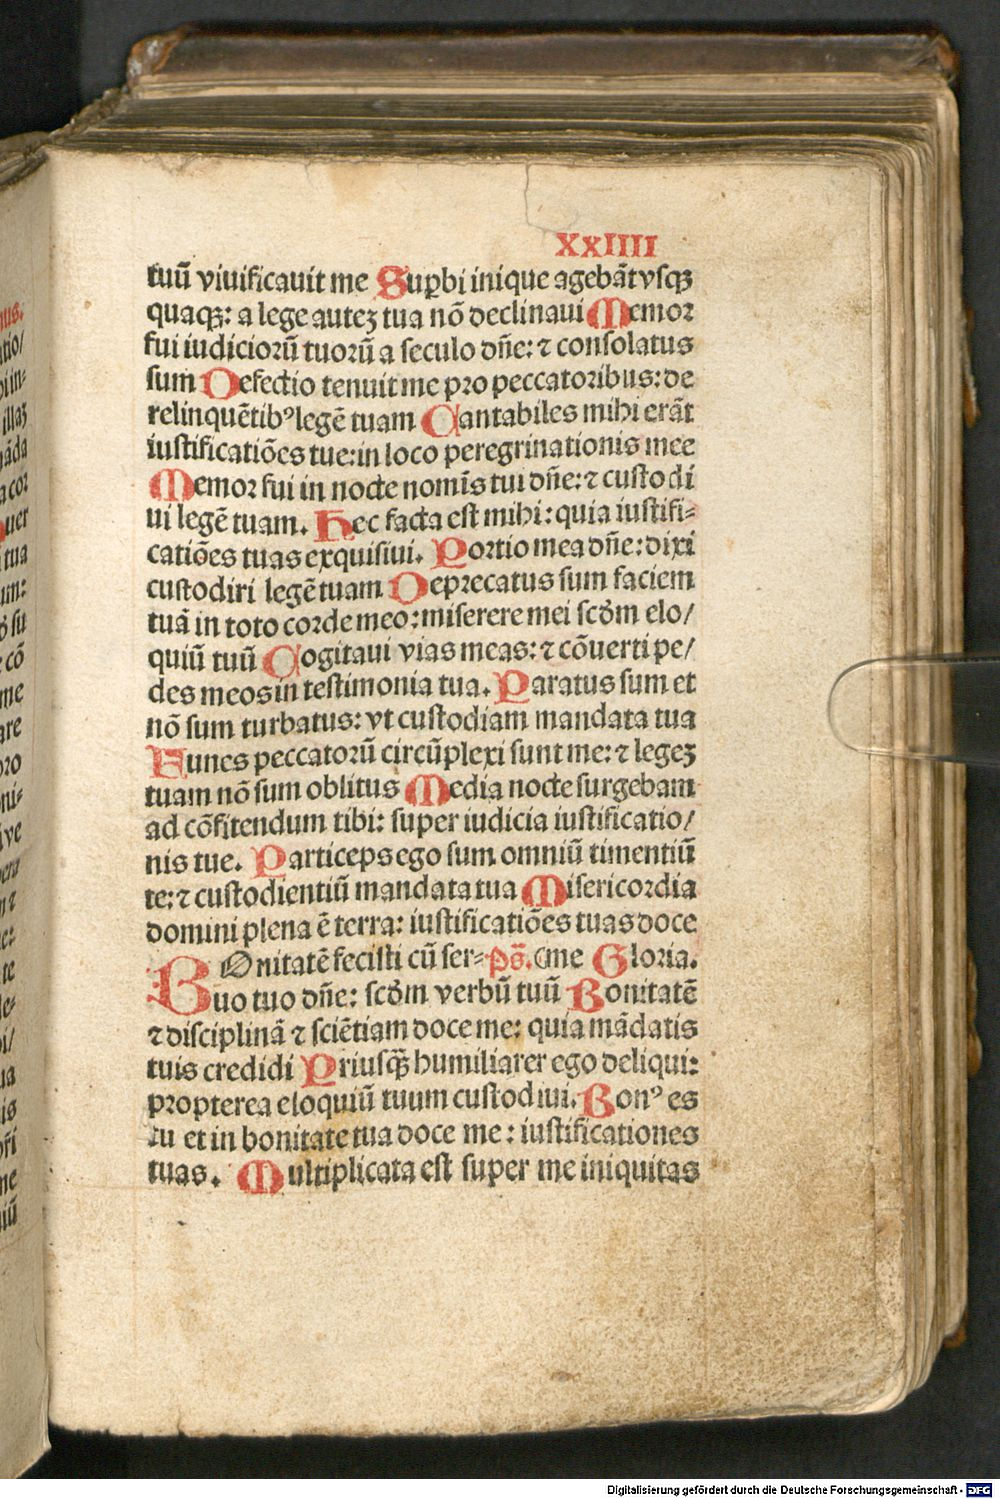 XxIIII
tuū viuificauit me Suꝑbi inique agebāt vsqꝫ
quaqꝫ: a lege auteꝫ tua nō declinaui Memor
fui iudicioꝛū tuoꝛū a seculo dn̄e: ⁊ consolatus
sum Defectio tenuit me pro peccatoꝛibus: de
relinquētibꝰ legē tuam Cantabiles mihi erāt
iustificatiōes tue: in loco peregrinationis mee
Memoꝛ fui in nocte nomīs tui dn̄e: ⁊ custodi
ui legē tuam. Hec facta est mihi: quia iustifi⸗
catiōes tuas exquisiui. Poꝛtio mea dn̄e: dixi
custodiri legē tuam Depꝛecatus sum faciem
tuā in toto coꝛde meo: miserere mei scd̄m elo/
quiū tuū Cogitaui vias meas: ⁊ cōuerti pe/
des meos in testimonia tua. Paratus sum et
nō sum turbatus: vt custodiam mandata tua
Funes peccatoꝛū circūplexi sunt me: ⁊ legeꝫ
tuam nō sum oblitus Media nocte surgebam
ad cōfitendum tibi: super iudicia iustificatio/
nis tue. Particeps ego sum omniū timentiū
te: ⁊ custodientiū mandata tua Misericoꝛdia
domini plena ē terra: iustificatiōes tuas doce
BOnitatē fecisti cū ser⸗ Ps̄. me Gloꝛia.
uo tuo dn̄e: scd̄m verbū tuū Bonitatē
⁊ disciplinā ⁊ sciētiam doce me: quia mādatis
tuis credidi Pꝛiusqꝫ̄ humiliarer ego deliqui:
pꝛopterea eloquiū tuum custodiui. Bonꝰ es
tu et in bonitate tua doce me: iustificationes
tuas. Multiplicata est super me iniquitas
Digitalisierung gefördert durch die Deutsche Forschungsgemeinschaft - DFG